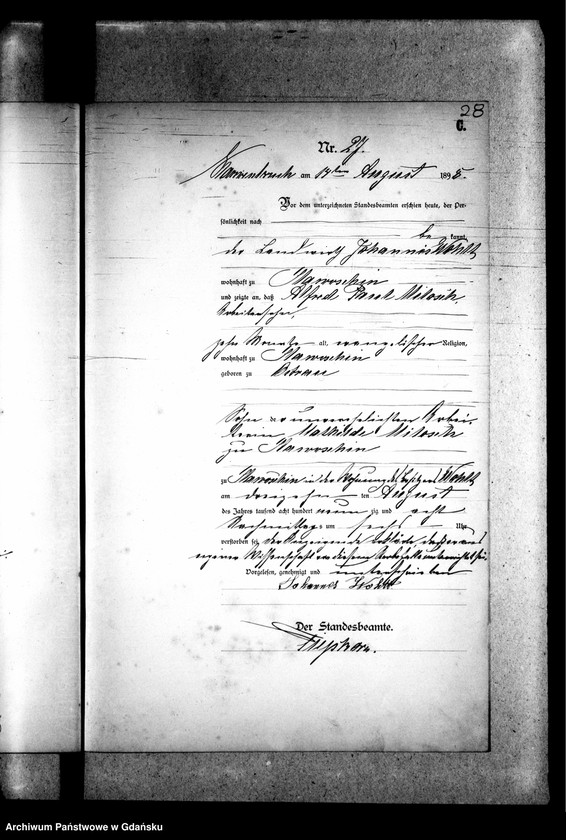 28
C.
Nr. 27.
am 14ten August 1898.
Vor dem unterzeichneten Standesbeamten erschien heute, der Per-
sönlichkeit nach
be kannt,
der Landwirth Johannes Wohlt
wohnhaft zu
und zeigte an, daß Alfred Paul Mitosch
Arbeitersohn,
zehn Monate alt, evangelischer Religion,
wohnhaft zu
geboren zu
Sohn der unverehelichten Arbei-
terin Mathilde Mitosch
zu
zu in der Wohnung des Besitzers Wohlt
am dreizehnten August
des Jahres tausend acht hundert neun zig und acht
Nachmittags um sechs Uhr
verstorben sei, der Anzeigende erklärte, daß er aus
eigener Wissenschaft von diesem Sterbefalle unterrichtet sei.
Vorgelesen, genehmigt und unterschrieben
Johannes Wohlt
Der Standesbeamte.
Archiwum Państwowe w Gdańsku